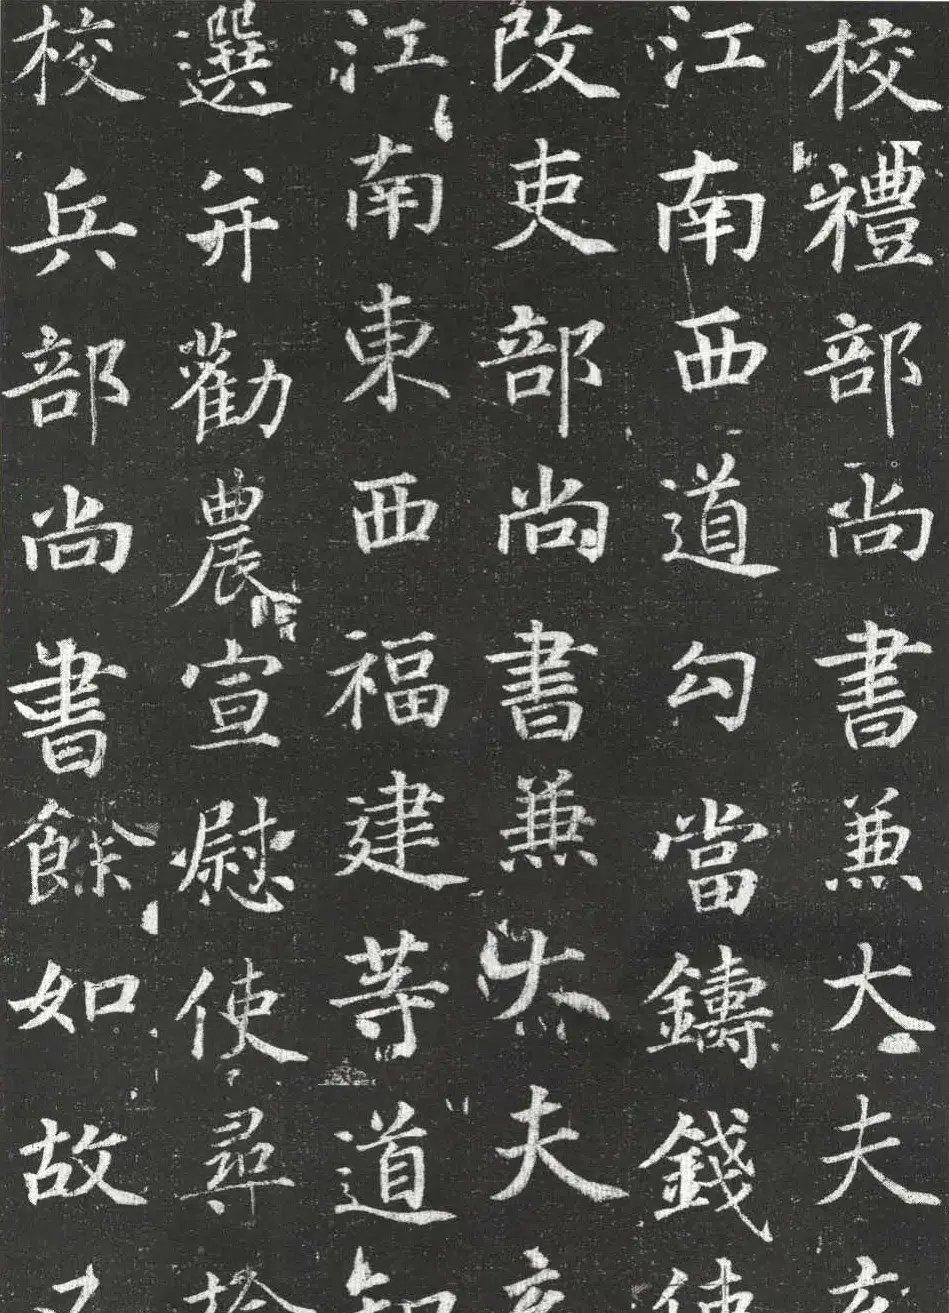 校禮部尚書兼大夫
江南西道勾當鑄錢
改吏部尚書兼大夫
江南東西福建等道
選并勸農宣慰使尋
校兵部尚書餘如故